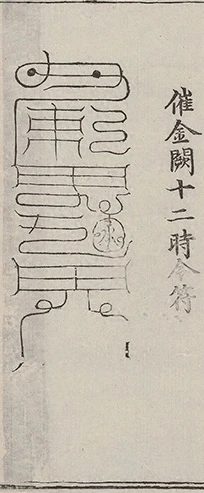 催金闕十二時令符